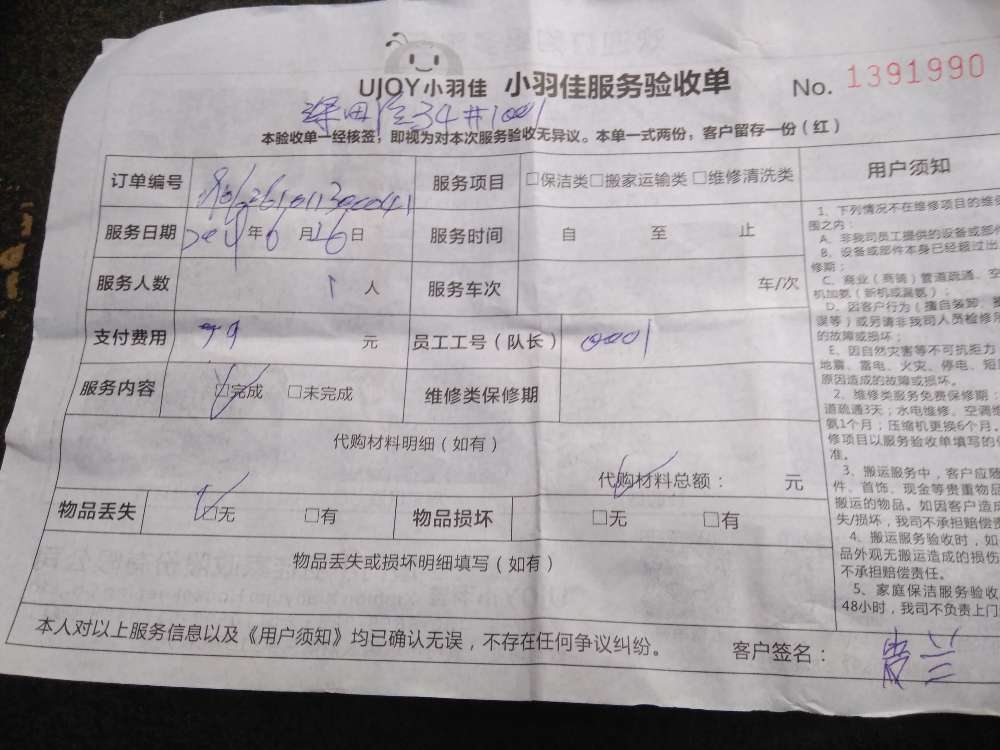 UJOY小羽佳 小羽佳服务验收单 No. 1391990
34#1001
本验收单一经核签，即视为对本次服务验收无异议。本单一式两份，客户留存一份（红）
订单编号
服务项目 □保洁类□搬家运输类□维修清洗类
服务日期 年6月16日
服务时间 自 至 止
服务人数 1人
服务车次 车/次
支付费用 99 元
员工工号（队长） 0001
服务内容 □完成 □未完成
维修类保修期
代购材料明细（如有）
代购材料总额： 元
物品丢失 □无 □有
物品损坏 □无 □有
物品丢失或损坏明细填写（如有）
本人对以上服务信息以及《用户须知》均已确认无误，不存在任何争议纠纷。
客户签名：
用户须知
1、下列情况不在维修项目的维修
围之内：
A、非我司员工提供的设备或部件
B、设备或部件本身已经超过出
修期；
C、商业（商铺）管道疏通、空
机加氨（新机或漏氨）；
D、因客户行为（擅自装卸、
误等）或另请非我司人员检修
的故障或损坏；
E、因自然灾害等不可抗拒力
地震、雷电、火灾、停电、短
原因造成的故障或损坏。
2、维修类服务免费保修期：
道疏通3天；水电维修、空调维
氨1个月；压缩机更换6个月。
修项目以服务验收单填写的
准。
3、搬运服务中，客户应随
件、首饰、现金等贵重物品
搬运的物品。如因客户造成
失/损坏，我司不承担赔偿责
4、搬运服务验收时，如
品外观无搬运造成的损伤
不承担赔偿责任。
5、家庭保洁服务验收
48小时，我司不负责上门